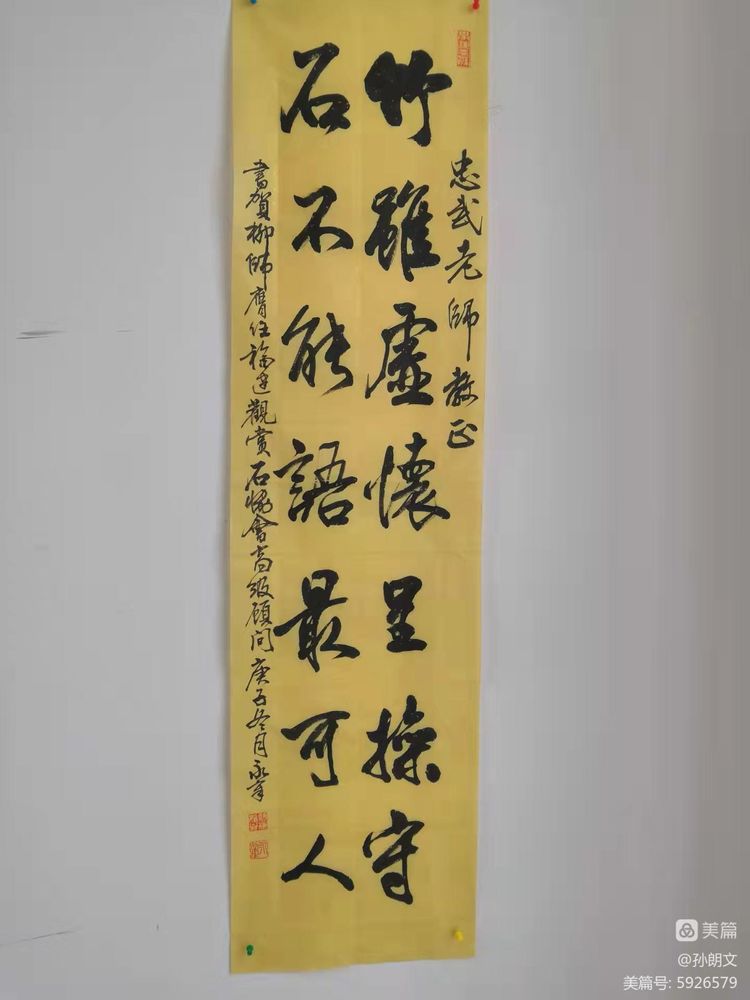 忠武老師教正
竹雖虛懷呈操守
石不能語最可人
書賀柳師膺任福建觀賞石協會高級顧问庚子冬月永
美篇
@孙朗文
美篇号: 5926579